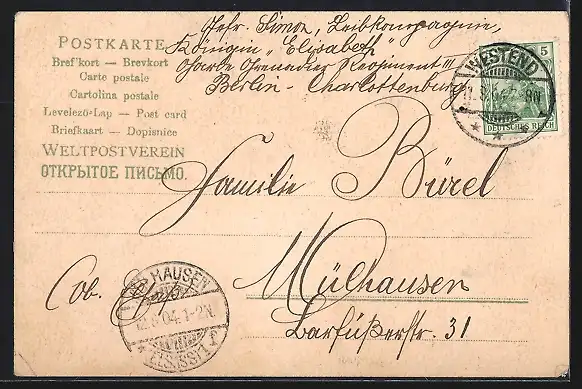 POSTKARTE
Bref'kort — Brevkort
Carte postale
Cartolina postale
Levelező-Lap — Post card
Briefkaart — Dopisnice
WELTPOSTVEREIN
ОТКРЫТОЕ ПИСЬМО.
Gefr. Simon, Leibkompagnie,
Königin „Elisabeth"
Garde Grenadier Regiment III
Berlin - Charlottenburg
5
DEUTSCHES REICH
WESTEND
Familie Bürel
Mülhausen
Barfüßerstr. 31
Ob.
HAUSEN
04.1-2N